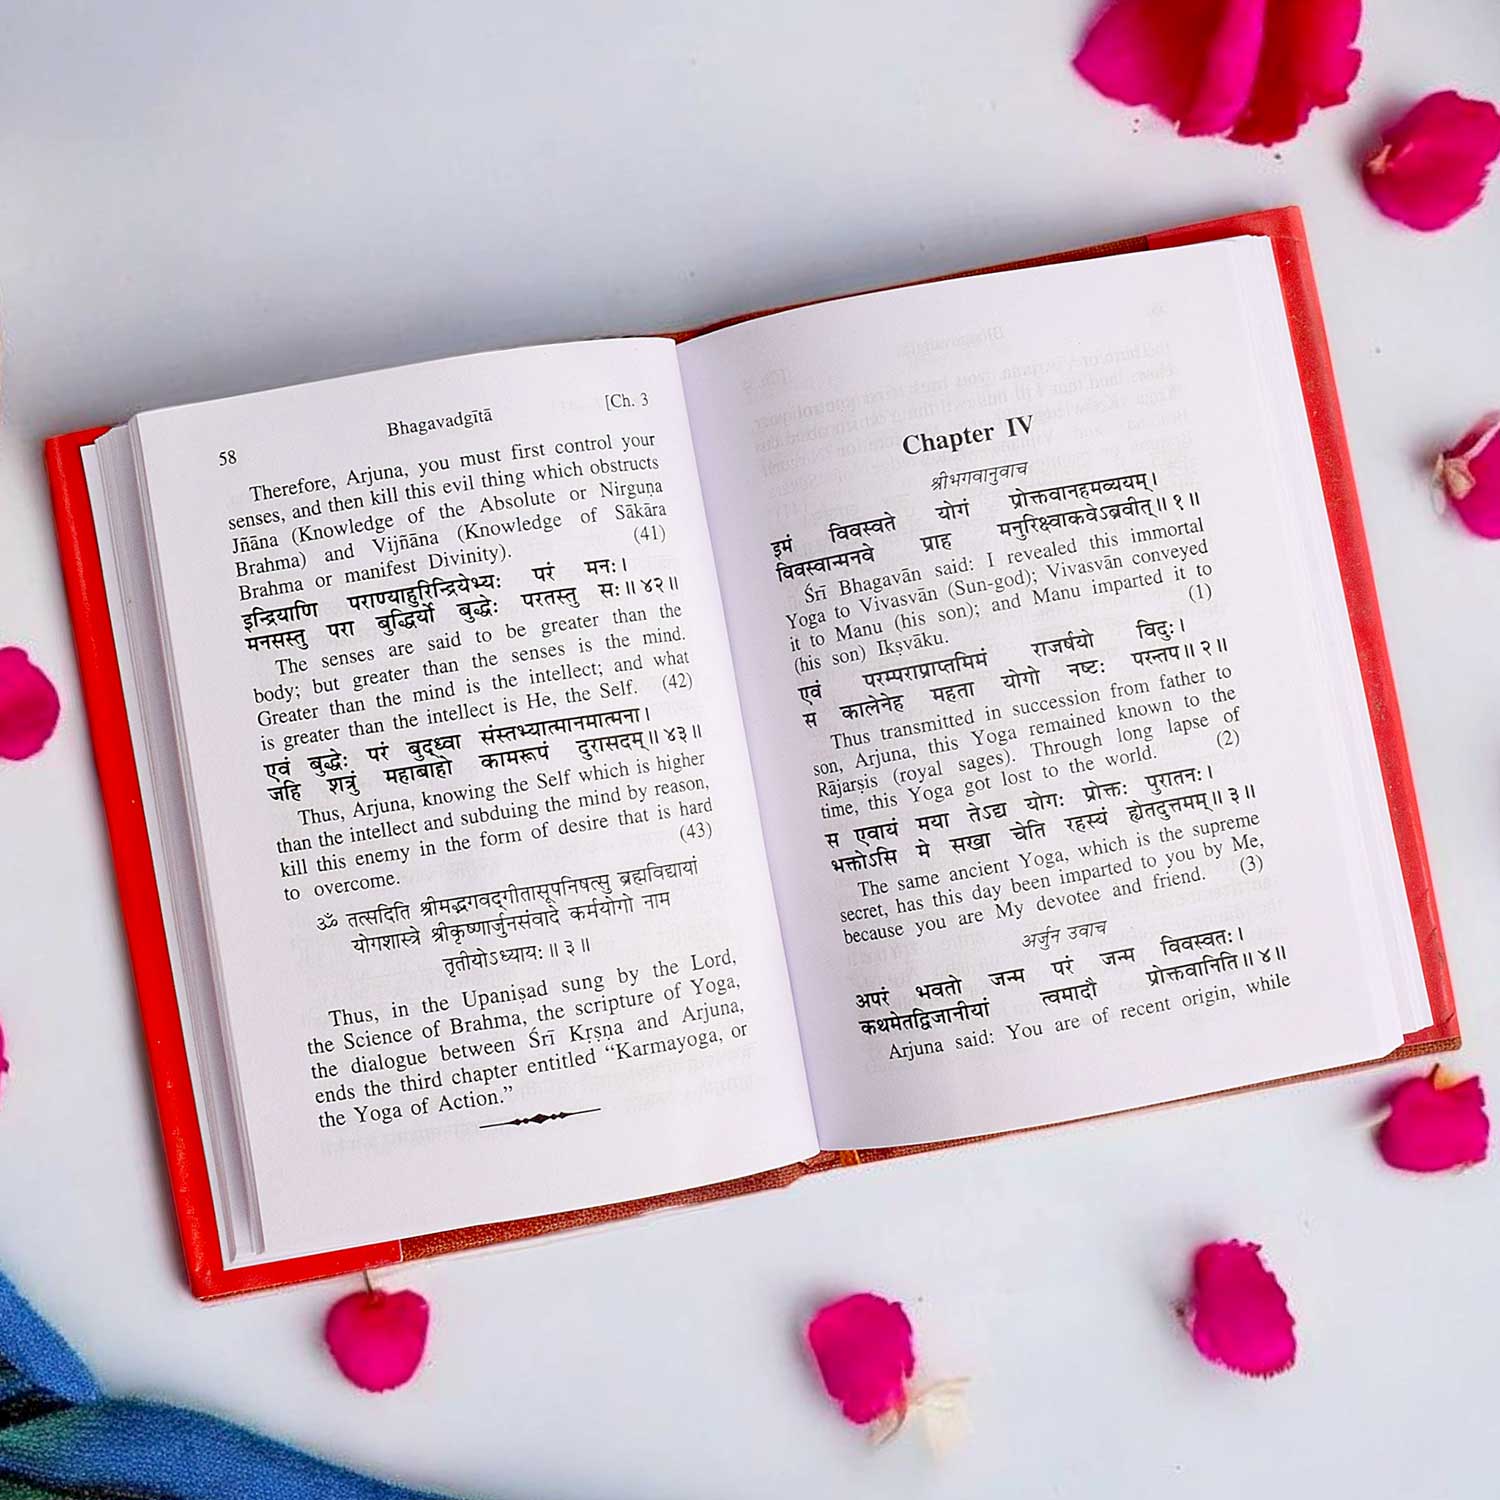 58 Bhagavadgītā [Ch. 3
Therefore, Arjuna, you must first control your
senses, and then kill this evil thing which obstructs
Jñāna (Knowledge of the Absolute or Nirguṇa
Brahma) and Vijñāna (Knowledge of Sākāra
Brahma or manifest Divinity). (41)
इन्द्रियाणि पराण्याहुरिन्द्रियेभ्यः परं मनः।
मनसस्तु परा बुद्धिर्यो बुद्धेः परतस्तु सः॥ ४२॥
The senses are said to be greater than the
body; but greater than the senses is the mind.
Greater than the mind is the intellect; and what
is greater than the intellect is He, the Self. (42)
एवं बुद्धेः परं बुद्ध्वा संस्तभ्यात्मानमात्मना।
जहि शत्रुं महाबाहो कामरूपं दुरासदम्॥ ४३॥
Thus, Arjuna, knowing the Self which is higher
than the intellect and subduing the mind by reason,
kill this enemy in the form of desire that is hard
to overcome. (43)
ॐ तत्सदिति श्रीमद्भगवद्गीतासूपनिषत्सु ब्रह्मविद्यायां
योगशास्त्रे श्रीकृष्णार्जुनसंवादे कर्मयोगो नाम
तृतीयोऽध्यायः॥ ३॥
Thus, in the Upaniṣad sung by the Lord,
the Science of Brahma, the scripture of Yoga,
the dialogue between Śrī Kṛṣṇa and Arjuna,
ends the third chapter entitled “Karmayoga, or
the Yoga of Action.”
Chapter IV
श्रीभगवानुवाच
इमं विवस्वते योगं प्रोक्तवानहमव्ययम्।
विवस्वान्मनवे प्राह मनुरिक्ष्वाकवेऽब्रवीत्॥ १॥
Śrī Bhagavān said: I revealed this immortal
Yoga to Vivasvān (Sun-god); Vivasvān conveyed
it to Manu (his son); and Manu imparted it to
(his son) Ikṣvāku. (1)
एवं परम्पराप्राप्तमिमं राजर्षयो विदुः।
स कालेनेह महता योगो नष्टः परन्तप॥ २॥
Thus transmitted in succession from father to
son, Arjuna, this Yoga remained known to the
Rājarṣis (royal sages). Through long lapse of
time, this Yoga got lost to the world. (2)
स एवायं मया तेऽद्य योगः प्रोक्तः पुरातनः।
भक्तोऽसि मे सखा चेति रहस्यं ह्येतदुत्तमम्॥ ३॥
The same ancient Yoga, which is the supreme
secret, has this day been imparted to you by Me,
because you are My devotee and friend. (3)
अर्जुन उवाच
अपरं भवतो जन्म परं जन्म विवस्वतः।
कथमेतद्विजानीयां त्वमादौ प्रोक्तवानिति॥ ४॥
Arjuna said: You are of recent origin, while